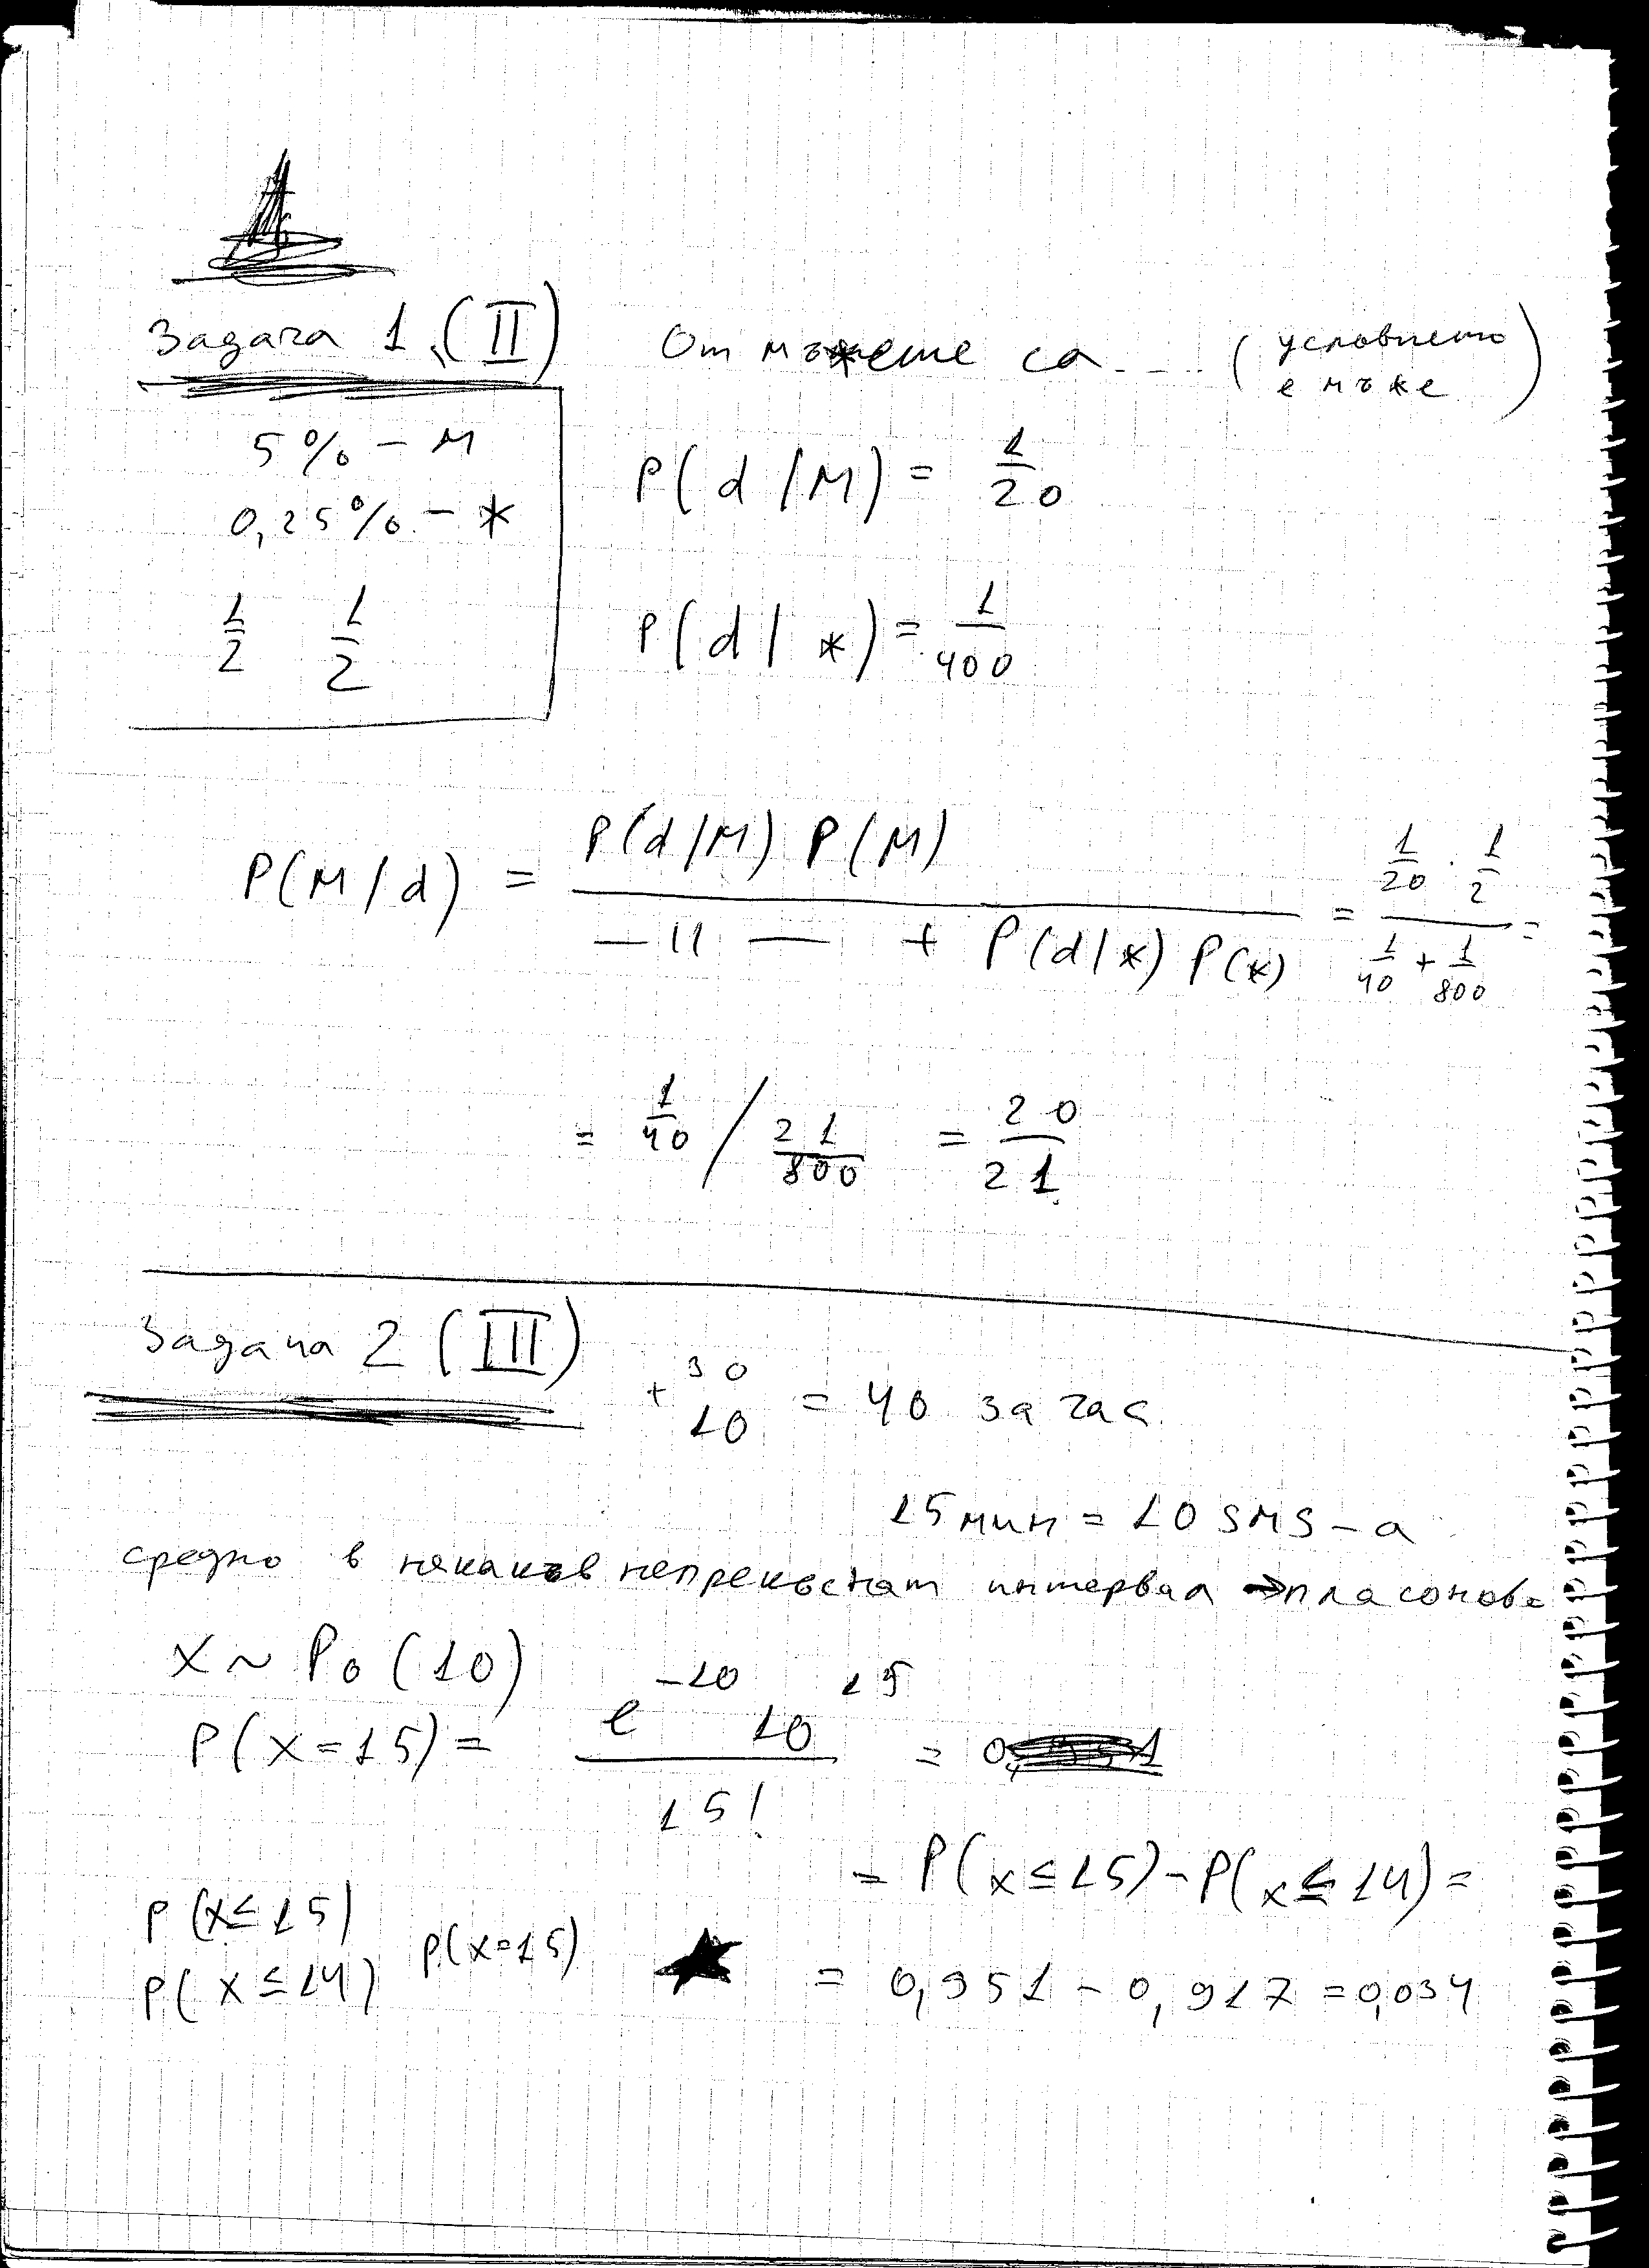 Задача 1. (II)
От мъжете са .... (условието е мъже)
5% - м
0,25% - ж
1/2 1/2
P(d/M) = 1/20
P(d|ж) = 1/400
P(M/d) = P(d/M) P(M) / (—11— + P(d|ж) P(ж)) = (1/20 · 1/2) / (1/40 + 1/800) =
= 1/40 / 21/800 = 20/21
Задача 2 (III)
30 + 10 = 40 за час.
15 мин = 10 SMS-а
средно в някакъв непрекъснат интервал → поасоново
X ~ Po (10)
P(x=15) = e^-10 10^15 / 15! = 0,
= P(x≤15) - P(x≤14) =
P(x≤15)
P(x≤14) P(x=15)
= 0,951 - 0,917 = 0,034